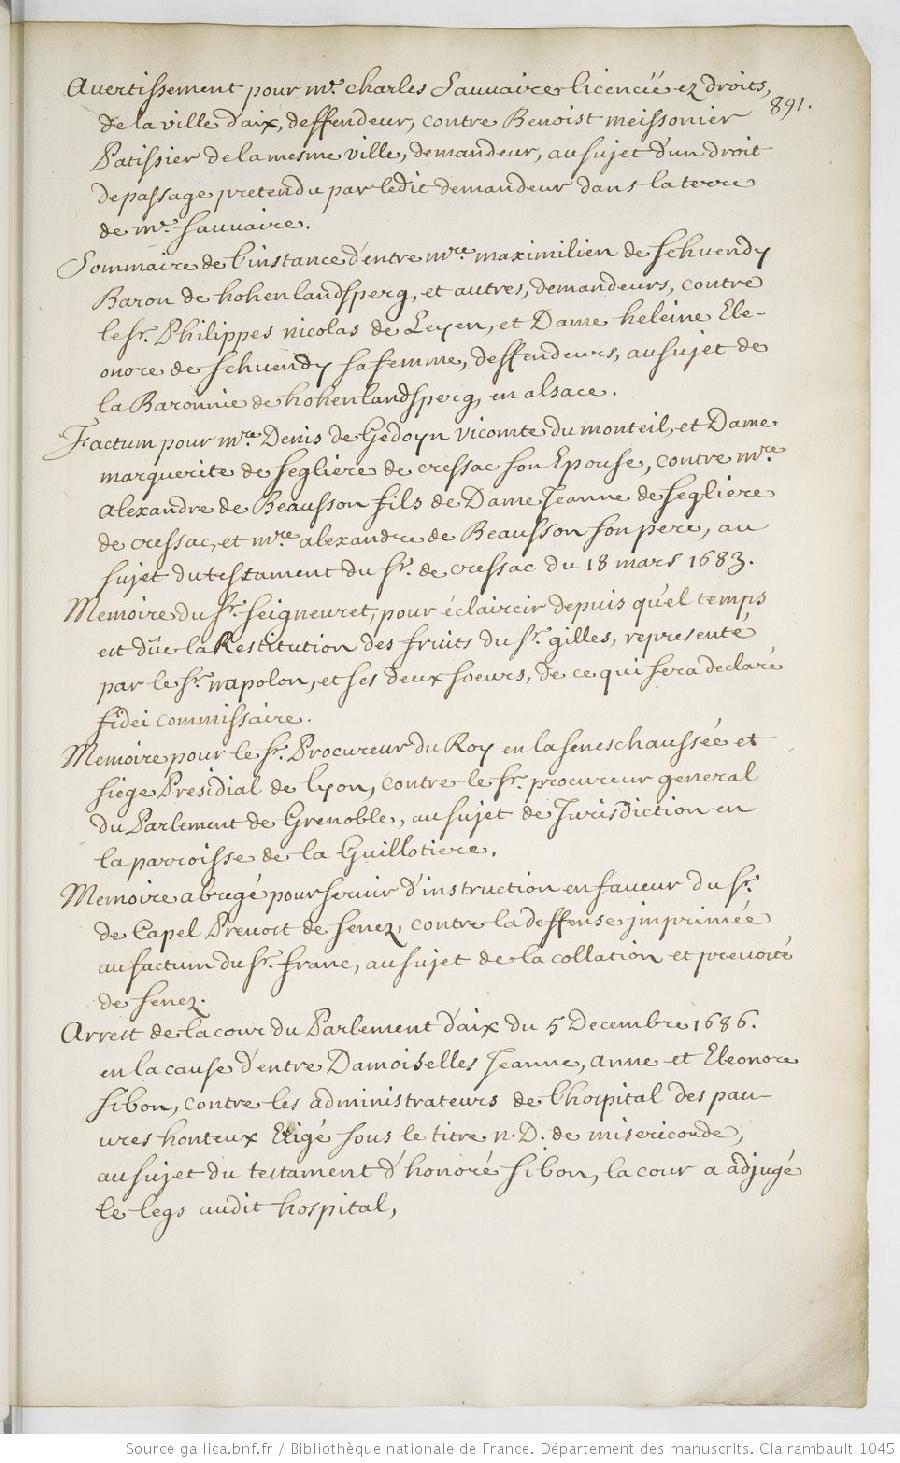 Avertissement pour mr. charles Sauvaire licencié ez droits,
891.
de la ville d'aix, deffendeur, contre Benoist meissonier
Patissier de la mesme ville, demandeur, au sujet d'un droit
de passage pretendu par ledit demandeur dans la terre
de mr. sauvaire.
Sommaire de l'instance d'entre mre. maximilien de schuendy
Baron de hohenlandsperg, et autres, demandeurs, contre
le sr. Philippes nicolas de Leyen, et Dame heleine Ele-
onore de schuendy sa femme, deffendeurs, au sujet de
la Baronnie de hohenlandsperg, en alsace.
Factum pour mre. Denis de Gedoyn vicomte du monteil, et Dame
marguerite de segliere de cressac son Epouse, contre mre.
alexandre de Beausson fils de Dame Jeanne de segliere
de cressac, et mre. alexandre de Beausson son pere, au
sujet du testament du sr. de cressac du 18 mars 1683.
Memoire du sr. seigneuret, pour éclaircir depuis quel temps
est düe la Restitution des fruits du sr. gilles, representé
par le sr. napolon, et ses deux soeurs, de ce qui sera declaré
fidei commissaire.
Memoire pour le sr. Procureur du Roy en la seneschaussée et
siege Presidial de lyon, contre le sr. procureur general
du Parlement de Grenoble, au sujet de Jurisdiction en
la parroisse de la Guillotiere.
Memoire abregé pour servir d'instruction en faveur du sr.
de Capel Prevost de senez, contre la deffense jmprimée
au factum du sr. franc, au sujet de la collation et prevoité
de senez.
Arrest de la cour du Parlement d'aix du 5 Decembre 1686.
en la cause d'entre Damoiselles Jeanne, anne et Eleonore
sibon, contre les administrateurs de l'hospital des pau-
vres honteux Erigé sous le titre n. D. de misericorde,
au sujet du testament d'honoré sibon, la cour a adjugé
le legs audit hospital,
Source gallica.bnf.fr / Bibliothèque nationale de France. Département des manuscrits. Clairambault 1045